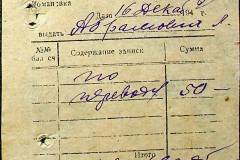 Командировка
Дата 16 декаб 194 г.
выдать Абрамович Л
№№ бал сч Содержание записи Сумма
по
переводу 50—
Итого